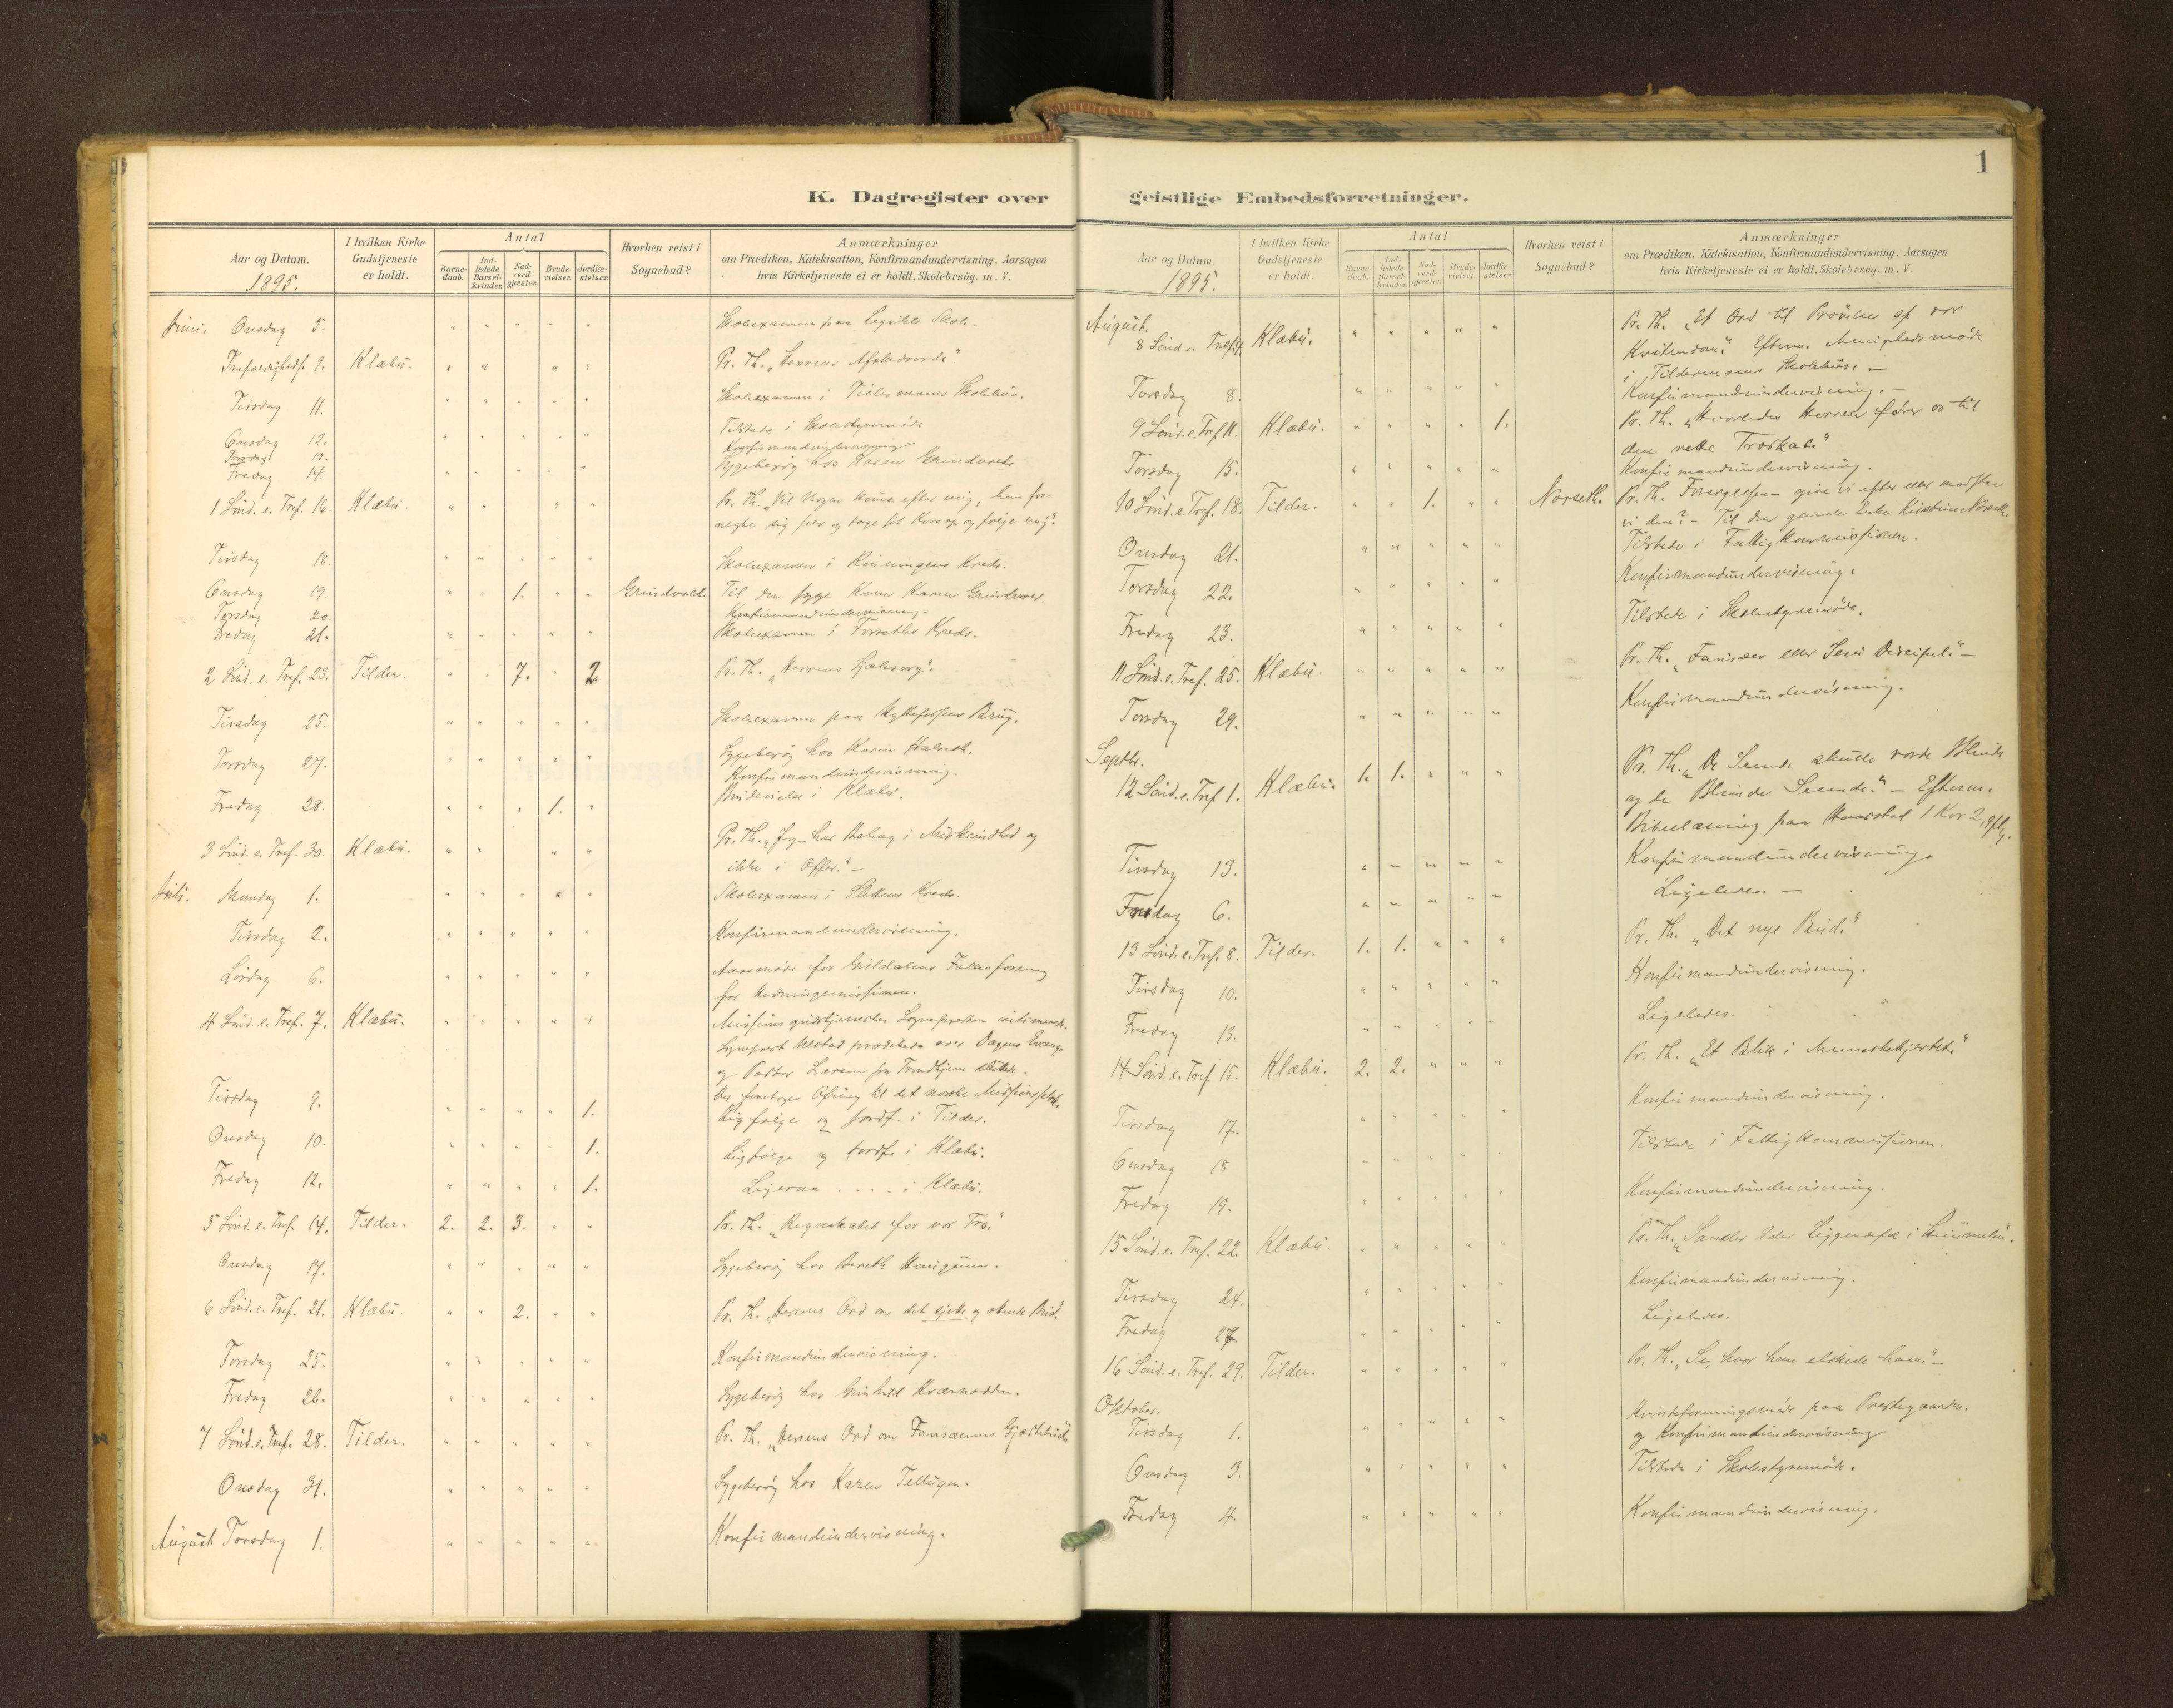 K. Dagregister over
Aar og Datum.
1895.
I hvilken Kirke
Gudstjeneste
er holdt.
Antal
Barne-
daab.
Ind-
ledede
Barsel-
kvinder.
Nad-
verd-
gjæster.
Brude-
vielser.
Jordfæ-
stelser.
Hvorhen reist i
Sognebud?
Anmærkninger
om Prædiken, Katekisation, Konfirmandundervisning, Aarsagen
hvis Kirketjeneste ei er holdt, Skolebesøg. m. V.
Juni. Onsdag 5. " " " " " Skoleexamen paa Skole.
Trefoldighedsf. 9. Klæbu. " " " " Pr. Th. „Herrens Afskedsord".
Tirsdag 11. " " " " " Skoleexamen i Tillermoens Skolehus.
Onsdag 12. " " " " " Tilstede i Skolestyremøde
Torsdag 13. Konfirmandundervisning
Fredag 14. " " " " " Sygebesøg hos Karen Grindvold
1 Sønd. e. Tref. 16. Klæbu. " " " " Pr. Th. „Vil Nogen komme efter mig, han for-
negte sig selv og tage sit Kors op og følge mig".
Tirsdag 18. " " " " " Skoleexamen i Kreds.
Onsdag 19. " " 1. " " Grindvold. Til den syge Kone Karen Grindvold.
Torsdag 20. Konfirmandundervisning.
Fredag 21. " " " " " Skoleexamen i Forseths Kreds.
2 Sønd. e. Tref. 23. Tilder. " " 7. " 2 Pr. Th. „Herrens Sjælesorg".
Tirsdag 25. " " " " " Skoleexamen paa Hyttefossens Brug.
Torsdag 27. " " " " " Sygebesøg hos Karen
Konfirmandundervisning.
Fredag 28. " " " 1. " Brudevielse i Klæbu.
3 Sønd. e. Tref. 30. Klæbu. " " " " Pr. Th. „Jeg har Behag i Miskundhed og
ikke i Offer." —
Juli. Mandag 1. " " " " " Skoleexamen i Kreds.
Tirsdag 2. " " " " " Konfirmandundervisning.
Lørdag 6. " " " " " Aarsmøde for Fællesforening
for Hedningemissionen.
4 Sønd. e. Tref. 7. Klæbu. " " " " " Missionsgudstjeneste. Sognepresten
Sogneprest Ulstad prædikede over Dagens Evang.
og Pastor Larsen fra Trondhjem
Der foretoges Ofring til det norske Missionsselsk.
Tirsdag 9. " " " " 1. Ligfølge og Jordf. i Tilder.
Onsdag 10. " " " " 1. Ligfølge og Jordf. i Klæbu.
Fredag 12. " " " " 1. Ligesaa . . . . i Klæbu.
5 Sønd. e. Tref. 14. Tilder. 2. 2. 3. " " Pr. Th. „Regnskabet for vor Tro."
Onsdag 17. " " " " " Sygebesøg hos Bereth
6 Sønd. e. Tref. 21. Klæbu. " " 2. " " Pr. Th. „Herrens Ord om det sjette og ottende Bud.
Torsdag 25. " " " " " Konfirmandundervisning.
Fredag 26. " " " " " Sygebesøg hos
7 Sønd. e. Tref. 28. Tilder. " " " " " Pr. Th. „Herrens Ord om Farisæernes Gjæstebud"
Onsdag 31. " " " " " Sygebesøg hos Karen Tellugen.
August Torsdag 1. " " " " " Konfirmandundervisning.
1
geistlige Embedsforretninger.
Aar og Datum.
1895.
I hvilken Kirke
Gudstjeneste
er holdt.
Antal
Barne-
daab.
Ind-
ledede
Barsel-
kvinder.
Nad-
verd-
gjæster.
Brude-
vielser.
Jordfæ-
stelser.
Hvorhen reist i
Sognebud?
Anmærkninger
om Prædiken, Katekisation, Konfirmandundervisning, Aarsagen
hvis Kirketjeneste ei er holdt. Skolebesøg. m. V.
August.
8 Sønd. e. Tref. 4. Klæbu. " " " " " Pr. Th. „Et Ord til Prøvelse af vor
Kristendom". Efterm. Menighedsmøde
i Tildermoens Skolehus. —
Torsdag 8. " " " " " Konfirmandundervisning. —
9 Sønd. e. Tref. 11. Klæbu. " " " " 1. Pr. Th. „Hvorledes Herren fører os til
den rette Troskab."
Torsdag 15. " " " " " Konfirmandundervisning.
10 Sønd. e. Tref. 18. Tilder. " " 1. " " Norseth. Pr. Th. — give vi efter eller modstaa
vi den? — Til den gamle Enke Kirstine Norseth.
Onsdag 21. " " " " " Tilstede i Fattigkommissionen.
Torsdag 22. " " " " Konfirmandundervisning.
Fredag 23. " " " " " Tilstede i Skolestyremøde.
11 Sønd. e. Tref. 25. Klæbu. " " " " " Pr. Th. „Farisæer eller Jesu Discipel." —
Torsdag 29. " " " " " Konfirmandundervisning.
Septbr.
12 Sønd. e. Tref. 1. Klæbu. 1. 1. " " " Pr. Th. „De Seende skulle vorde Blinde
og de Blinde Seende." — Efterm.
Bibellæsning paa Haarstad 1 Kor 2,
Tirsdag 13. " " " " " Konfirmandundervisning.
Fredag 6. " " " " " Ligeledes. —
13 Sønd. e. Tref. 8. Tilder. 1. 1. " " " Pr. Th. „Det nye Bud."
Tirsdag 10. " " " " " Konfirmandundervisning.
Fredag 13. " " " " " Ligeledes.
14 Sønd. e. Tref. 15. Klæbu. 2. 2. " " " Pr. Th. „Et Blik i Menneskehjertet."
Tirsdag 17. " " " " " Konfirmandundervisning.
Onsdag 18 " " " " " Tilstede i Fattigkommissionen.
Fredag 19. " " " " " Konfirmandundervisning.
15 Sønd. e. Tref. 22. Klæbu. " " " " " Pr. Th. „Samler Eder Liggendefæ i Himmelen".
Tirsdag 24. " " " " " Konfirmandundervisning.
Fredag 27. " " " " " Ligeledes.
16 Sønd. e. Tref. 29. Tilder. " " " " " Pr. Th. „Se, hvor han elskede ham." —
Oktober.
Tirsdag 1. " " " " " Kvindeforeningsmøde paa Prestegaarden.
og Konfirmandundervisning
Onsdag 3. " " " " " Tilstede i Skolestyremøde.
Fredag 4. " " " " " Konfirmandundervisning.